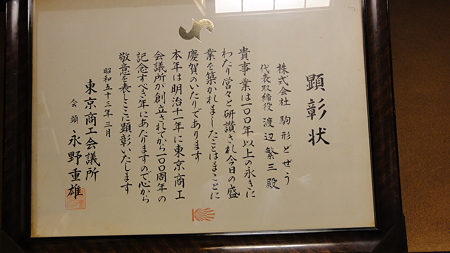 顕彰状
株式会社 駒形どぜう
代表取締役 渡辺繁三殿
貴事業は一〇〇年以上の永きに
わたり営々と研讃され今日の盛
業を築かれましたことはまことに
慶賀のいたりであります
本年は明治十一年に東京商工
会議所が創立されてから一〇〇周年の
記念すべき年にあたりますので心から
敬意を表しここに顕彰いたします
昭和五十三年三月
東京商工会議所
会頭 永野重雄